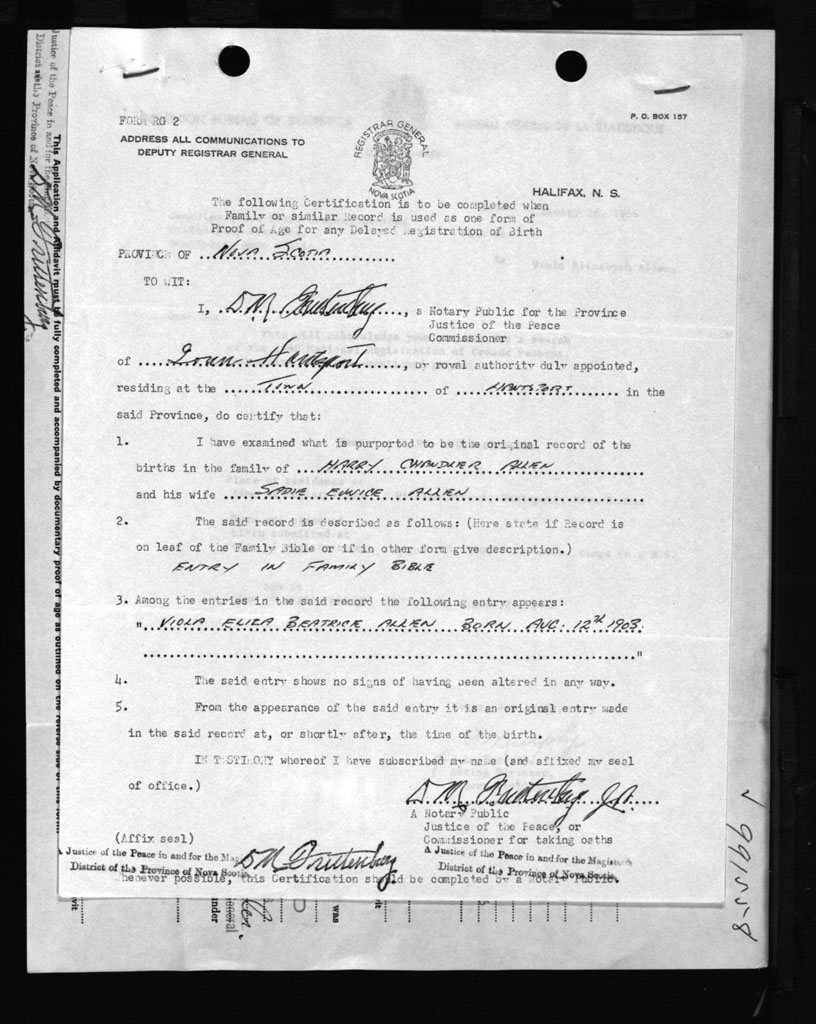 FORM RG 2
P. O. BOX 157
ADDRESS ALL COMMUNICATIONS TO
DEPUTY REGISTRAR GENERAL
REGISTRAR GENERAL
NOVA SCOTIA
HALIFAX, N. S.
The following Certification is to be completed when
Family or similar Record is used as one form of
Proof of Age for any Delayed Registration of Birth
PROVINCE OF ..NOVA SCOTIA............
TO WIT:
I, D.M. ...., a Notary Public for the Province
Justice of the Peace
Commissioner
of .... Hantsport......, by royal authority duly appointed,
residing at the ......TOWN.................. of ......HANTSPORT........ in the
said Province, do certify that:
1. I have examined what is purported to be the original record of the
births in the family of ....HARRY CHANDLER ALLEN....................
and his wife ....SADIE EUNICE ALLEN....................
2. The said record is described as follows: (Here state if Record is
on leaf of the Family Bible or if in other form give description.)
ENTRY IN FAMILY BIBLE
3. Among the entries in the said record the following entry appears:
"..VIOLA ELIZA BEATRICE ALLEN BORN AUG. 12th 1903.
...................................................................."
4. The said entry shows no signs of having been altered in any way.
5. From the appearance of the said entry it is an original entry made
in the said record at, or shortly after, the time of the birth.
IN TESTIMONY whereof I have subscribed my name (and affixed my seal
of office.)
D.M. J.P.
A Notary Public
Justice of the Peace, or
Commissioner for taking oaths
(Affix seal)
A Justice of the Peace in and for the
District of the Province of Nova Scotia
D.M.
A Justice of the Peace in and for the
District of the Province of Nova Scotia.
Whenever possible, this Certification should be completed by a Notary Public.
Justice of the Peace in and for the
District of the Province of
This Application and Affidavit must be fully completed and accompanied by documentary proof of age as outlined on the reverse side of the form
991558
was
under
General